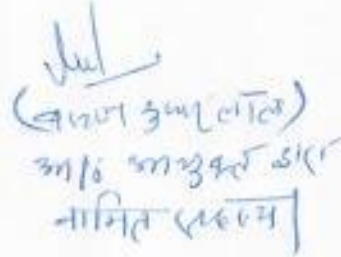 (वरुण कुमार लाल)
आ० आयुक्त द्वारा
नामित सदस्य